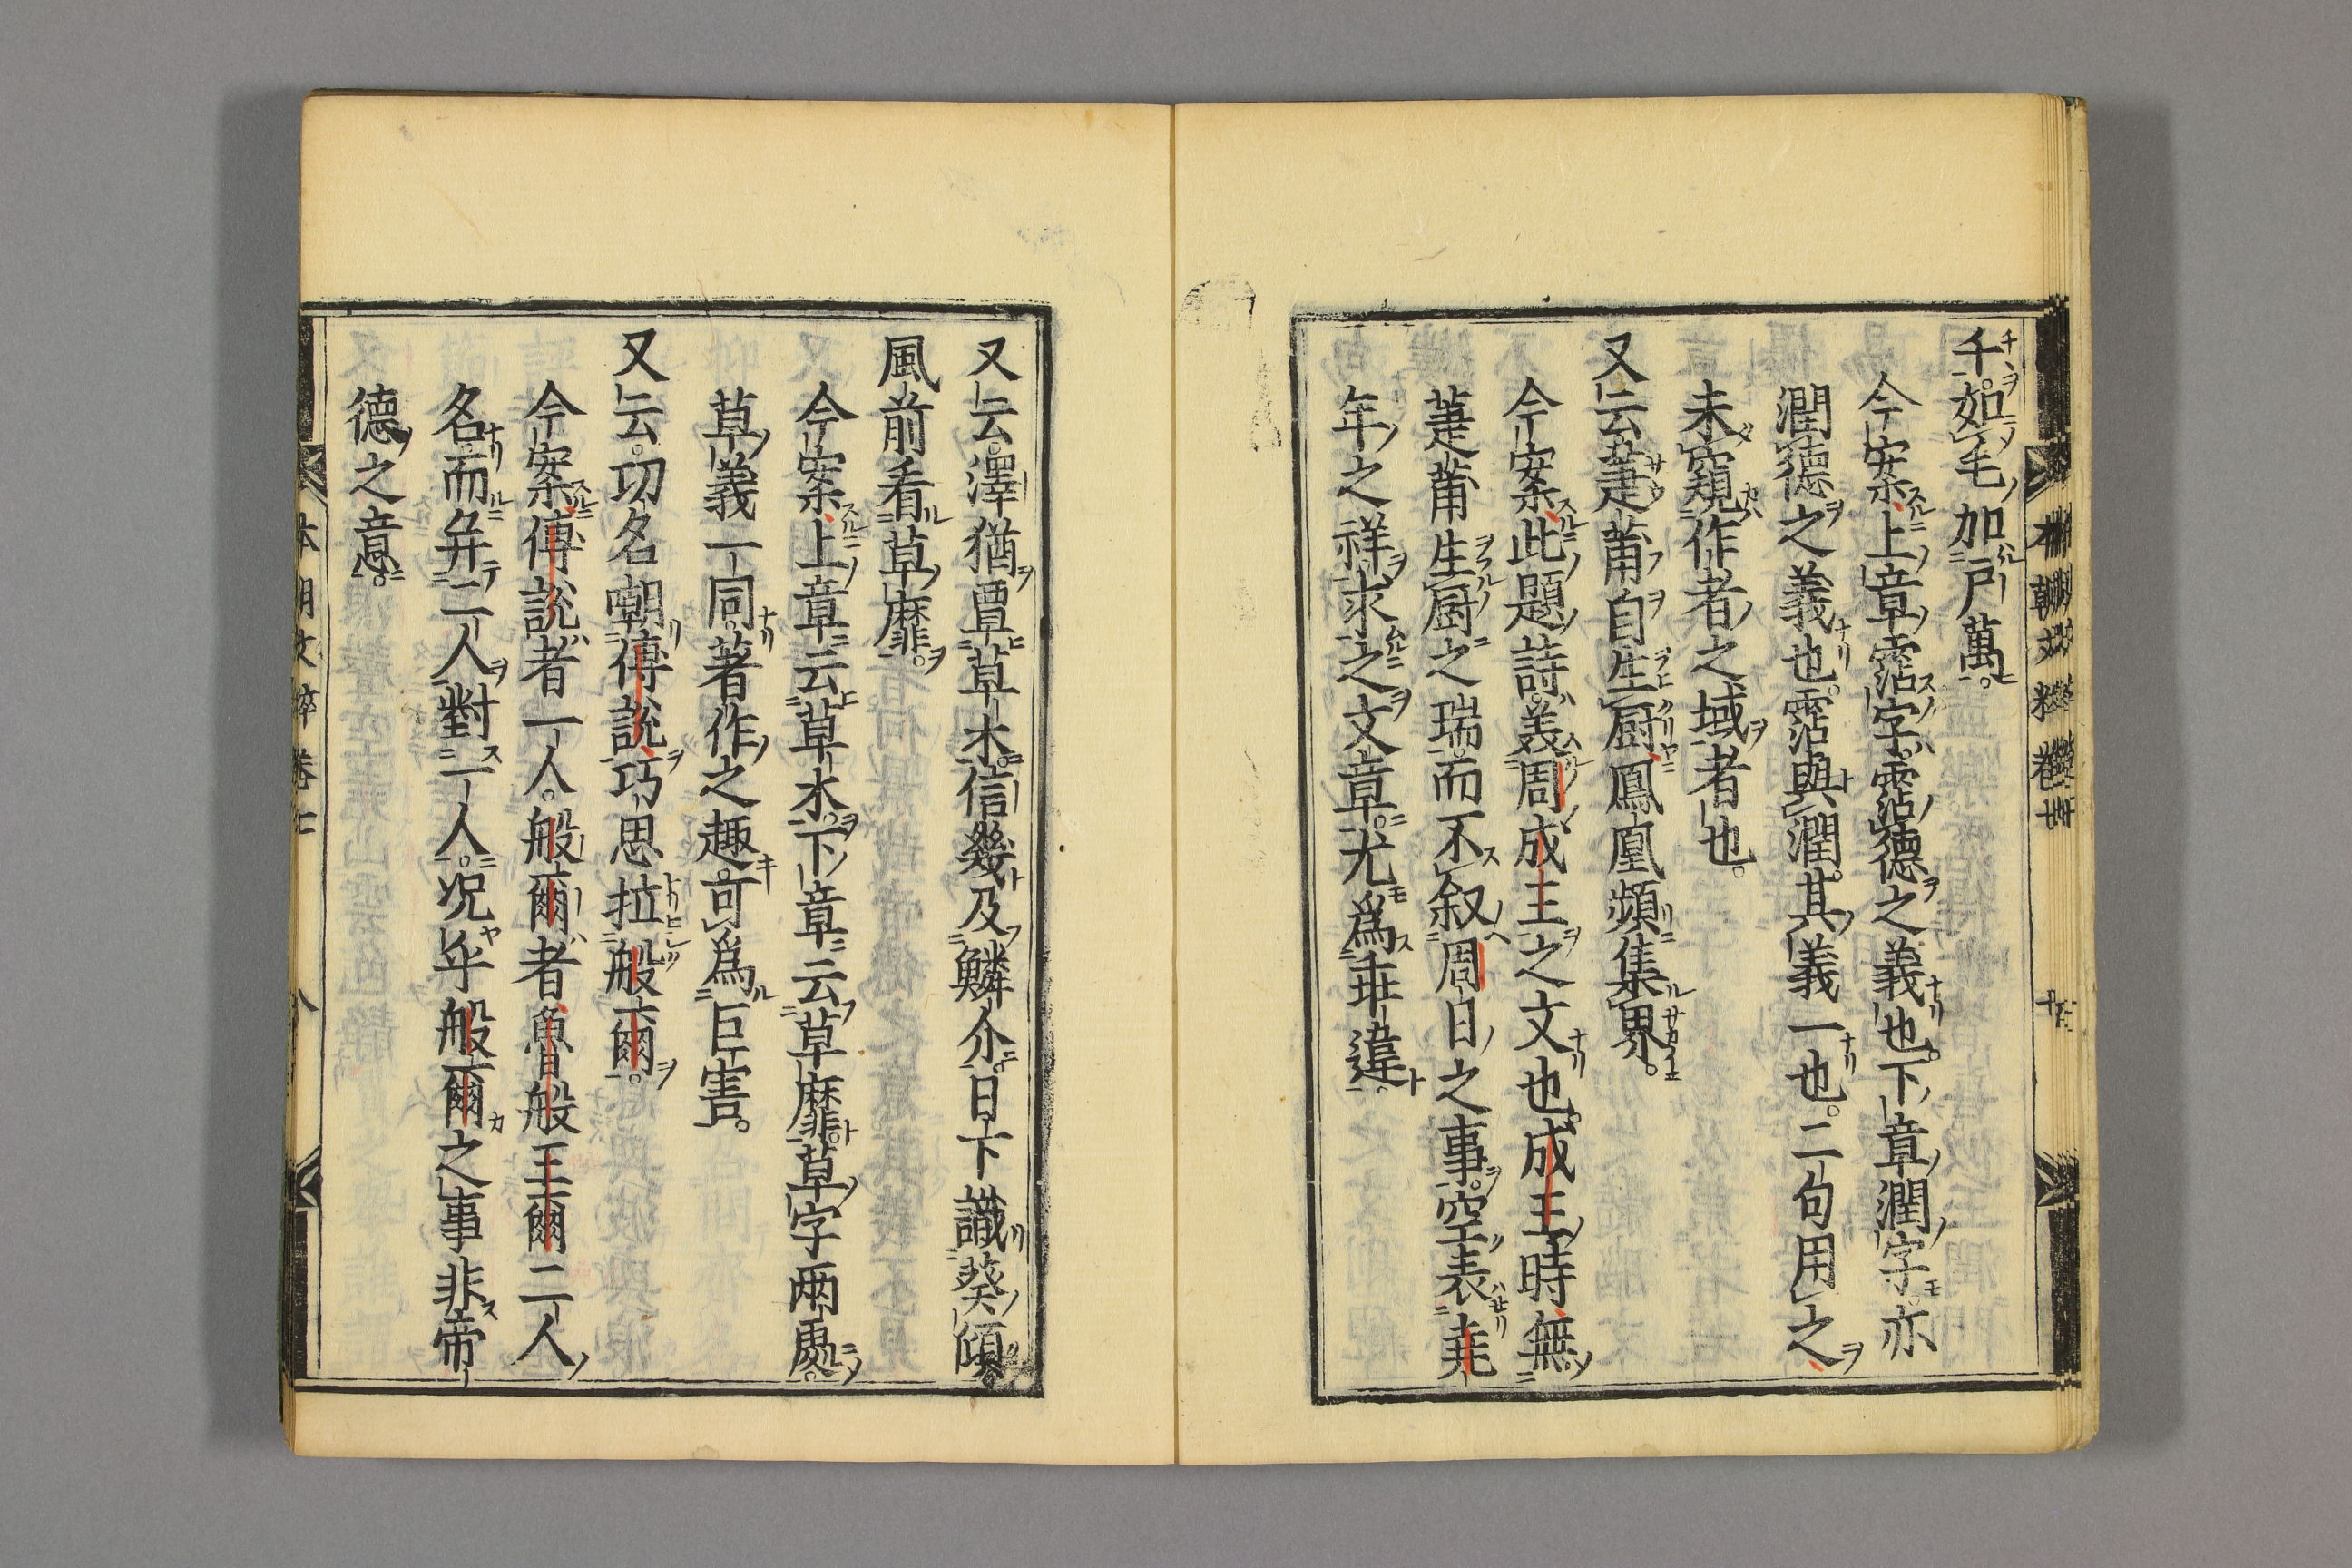 千如毛加戸萬
今案上章霑字霑德之義也下章潤字亦
潤德之義也霑與潤其義一也二句用之
未窺作者之域者也
又云萐莆自生厨鳳凰頻集界
今案此題詩美周成王之文也成王時無
萐莆生厨之瑞而不叙周日之事空表堯
年之祥求之文章尤爲乖違
又云澤猶覃草木信幾及鱗介日下識葵傾
風前看草靡
今案上章云草木下章云草靡草字兩處
草義一同著作之趣可爲巨害
又云功名嘲傅說巧思拉般爾
今案傅說者一人般爾者魯般王爾二人
名而并二人對一人况乎般爾之事非帝
德之意